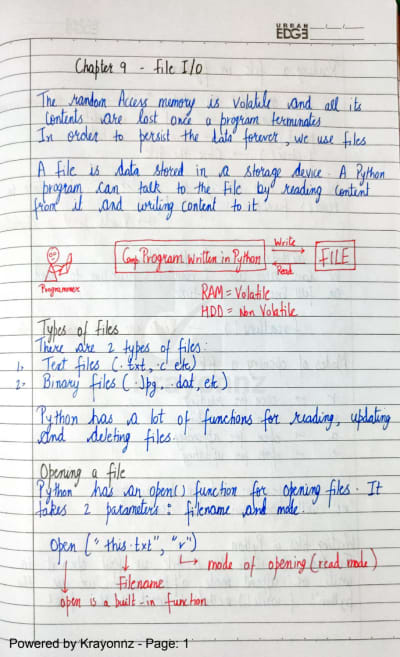 URBAN
EDGE
Chapter 9 - File I/O
The random Access memory is volatile and all its
contents are lost once a program terminates
In order to persist the data forever, we use files
A file is data stored in a storage device. A Python
program can talk to the file by reading content
from it and writing content to it
Programmer
Program Written in Python
Write
Read
FILE
RAM = Volatile
HDD = Non Volatile
Types of Files
There are 2 types of files:
1. Text files (.txt, .c etc)
2. Binary files (.Jpg, .dat, etc)
Python has a lot of functions for reading, updating
and deleting files.
Opening a file
Python has an open() function for opening files. It
takes 2 parameters: filename and mode.
open ("this.txt", "r")
mode of opening (read mode)
Filename
open is a built-in function
Powered by Krayonnz - Page: 1